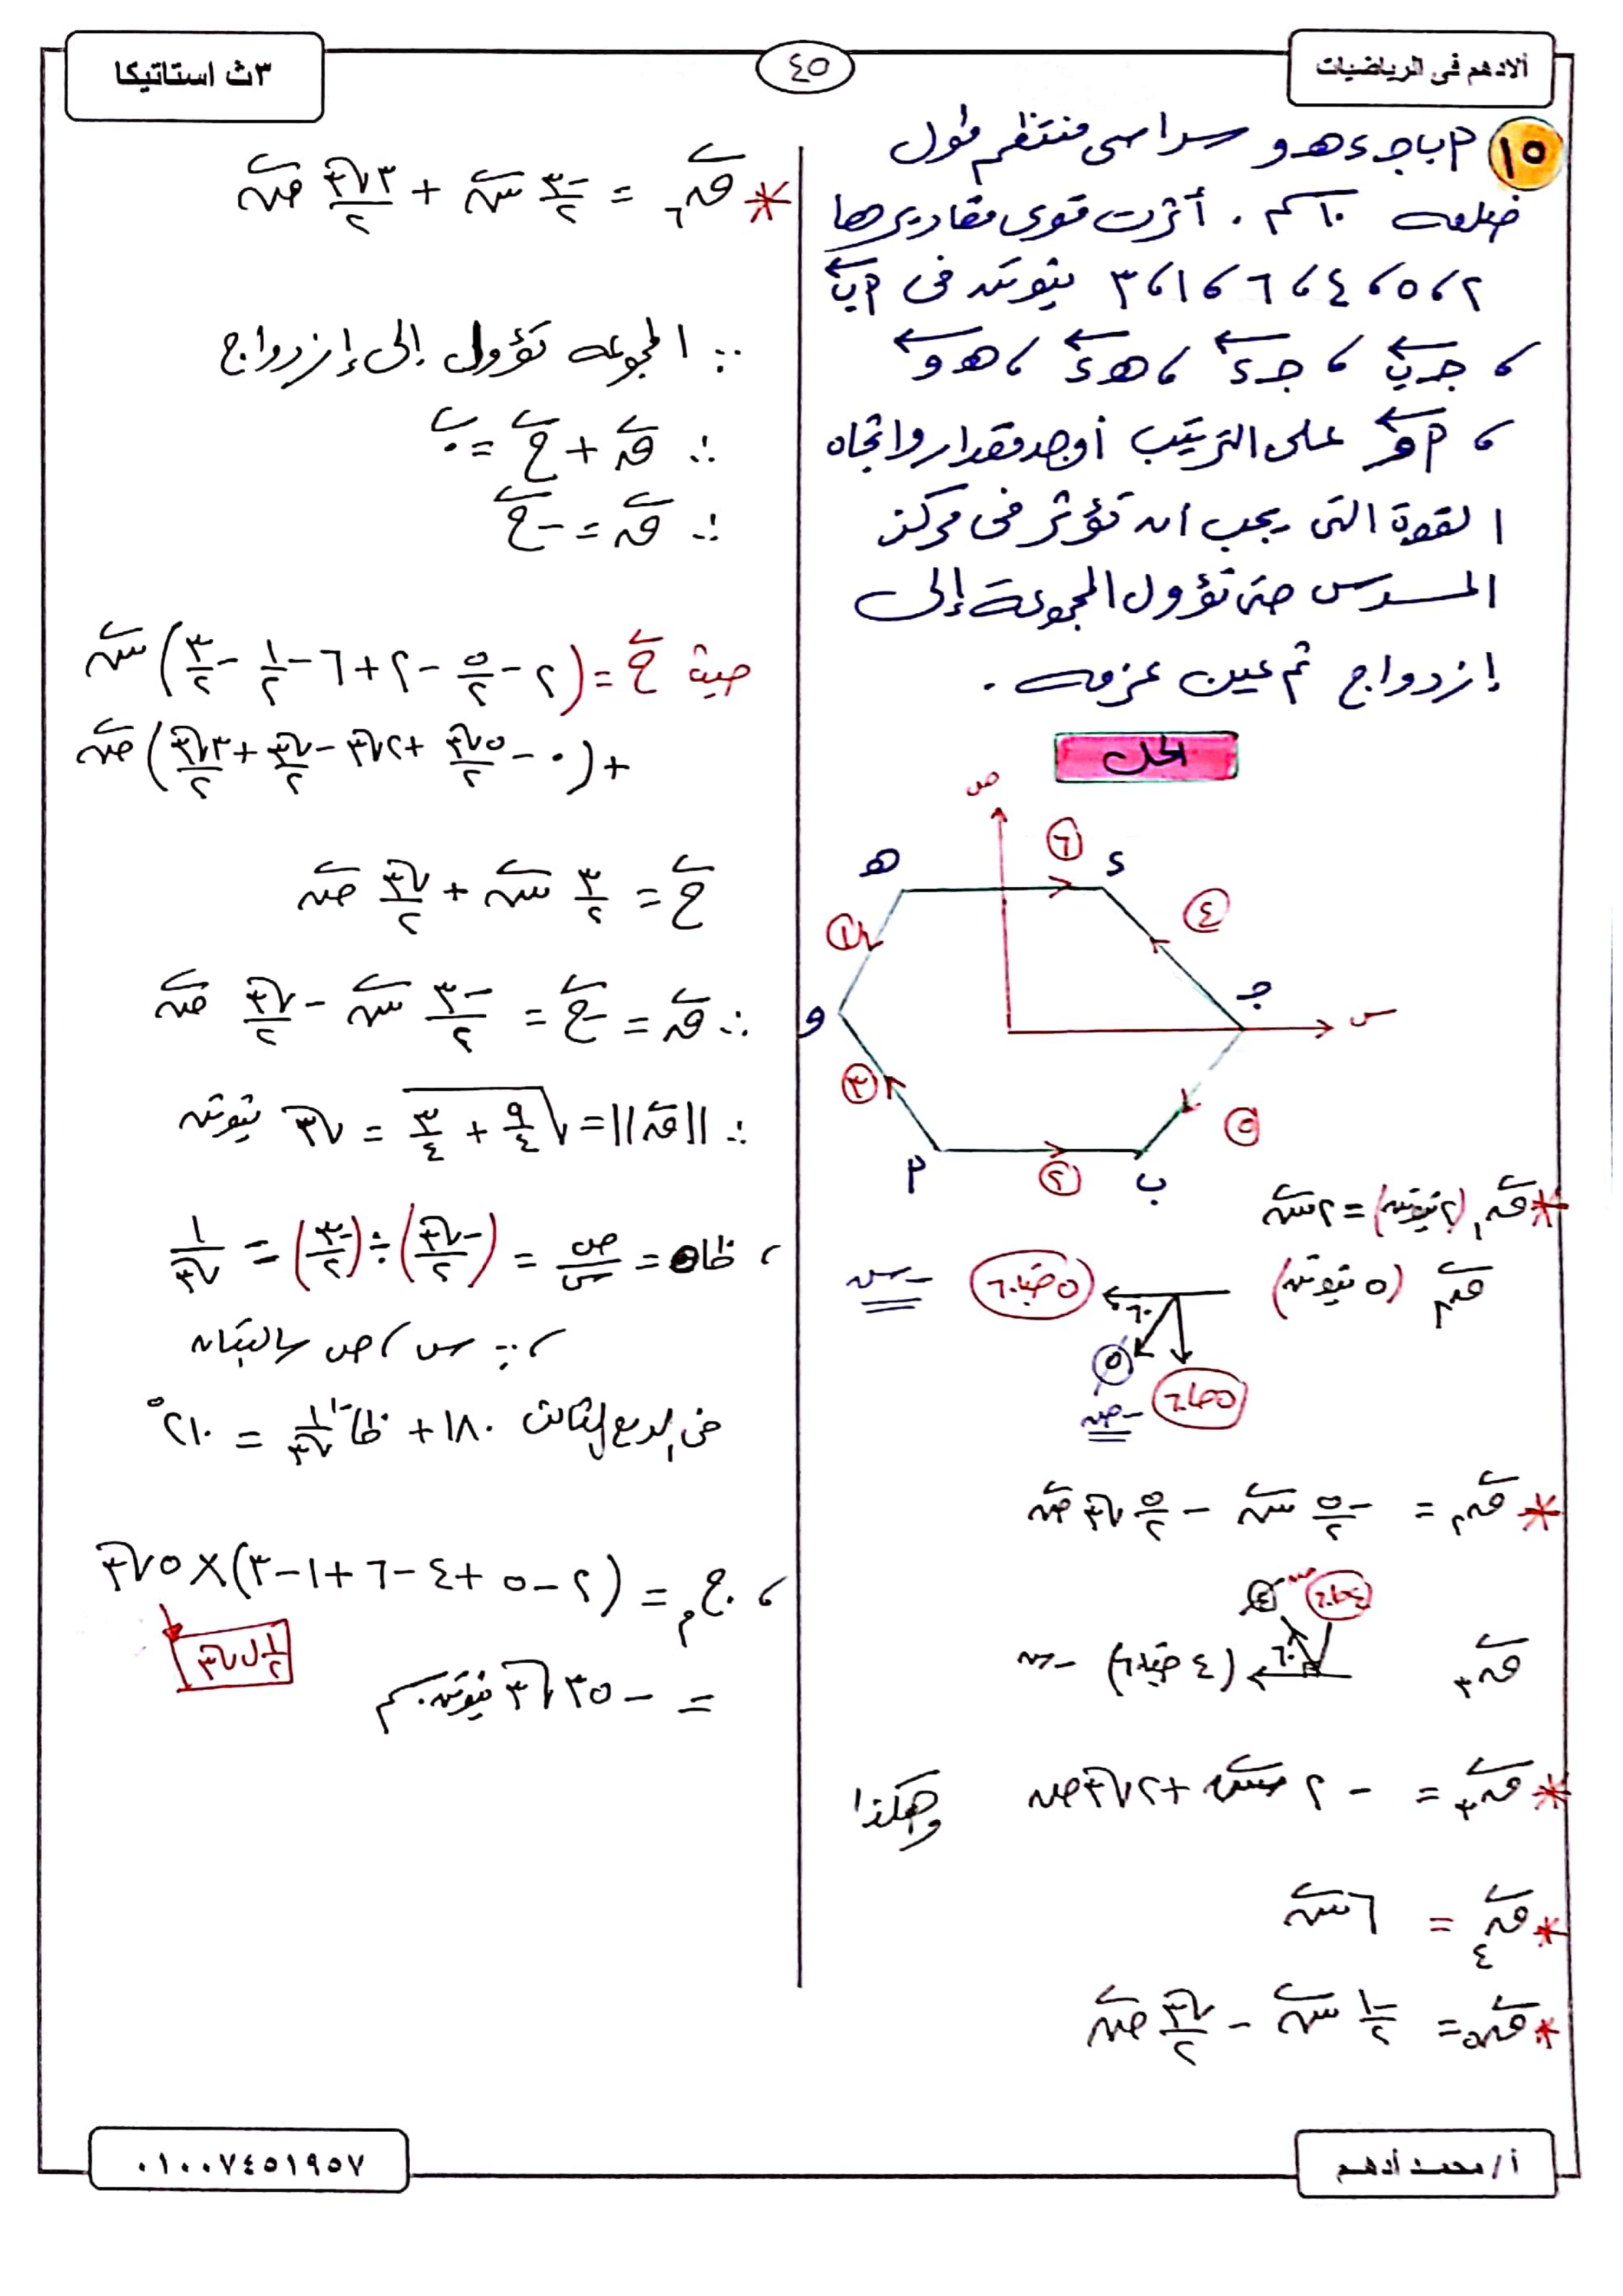 ألادهم فى الرياضيات
٤٥
٣ث استاتيكا
١٥ م ب ج د ه و سداسى منتظم طول
ضلعه ١٠سم . أثرت قوى مقاديرها
٢ ، ٥ ، ٤ ، ٦ ، ١ ، ٣ نيوتن فى م ب
، ج ب ، ج د ، ه د ، ه و
، م و على الترتيب أوجد مقدار واتجاه
القوة التى يجب ان تؤثر فى مركز
المسدس حتى تؤول المجموعة إلى
إزدواج ثم عين عزمه .
الحل
ص
ه ٦ د
١ ٤
و ج س
٣ ٥
م ٢ ب
* ق١ (٢ نيوتن) = ٢ س
ق٢ (٥ نيوتن) ٥ حتا ٦٠ - س
٦٠
٥ ٥ حا ٦٠
- ص
* ق٢ = -٥/٢ س - ٥/٢ √٣ ص
٤ ٤ حا ٦٠ ص
ق٣ ٦٠ (٤ حتا ٦٠) - س
* ق٣ = - ٢ س + ٢√٣ ص وهكذا
* ق٤ = ٦ س
* ق٥ = -١/٢ س - √٣/٢ ص
* ق٦ = -٣/٢ س + ٣√٣/٢ ص
∵ المجموعه تؤول إلى إزدواج
∴ ق + ح = ٠
∴ ق = - ح
حيث ح = (٢ - ٥/٢ - ٢ + ٦ - ١/٢ - ٣/٢) س
+ (٠ - ٥√٣/٢ + ٢√٣ - √٣/٢ + ٣√٣/٢) ص
ح = ٣/٢ س + √٣/٢ ص
∴ ق = - ح = -٣/٢ س - √٣/٢ ص
∴ ||ق|| = √(٩/٤ + ٣/٤) = √٣ نيوتن
، ظاه = ص/س = (-√٣/٢) ÷ (-٣/٢) = ١/√٣
، ∵ س ، ص سالبتان
فى الربع الثالث ١٨٠ + ظا⁻¹ ١/√٣ = ٢١٠°
، ج م = (٢ - ٥ + ٤ - ٦ + ١ - ٣) × ٥√٣
١/٢ ل √٣
= - ٣٥√٣ نيوتن.سم
أ/محمد أدهم
٠١٠٠٧٤٥١٩٥٧